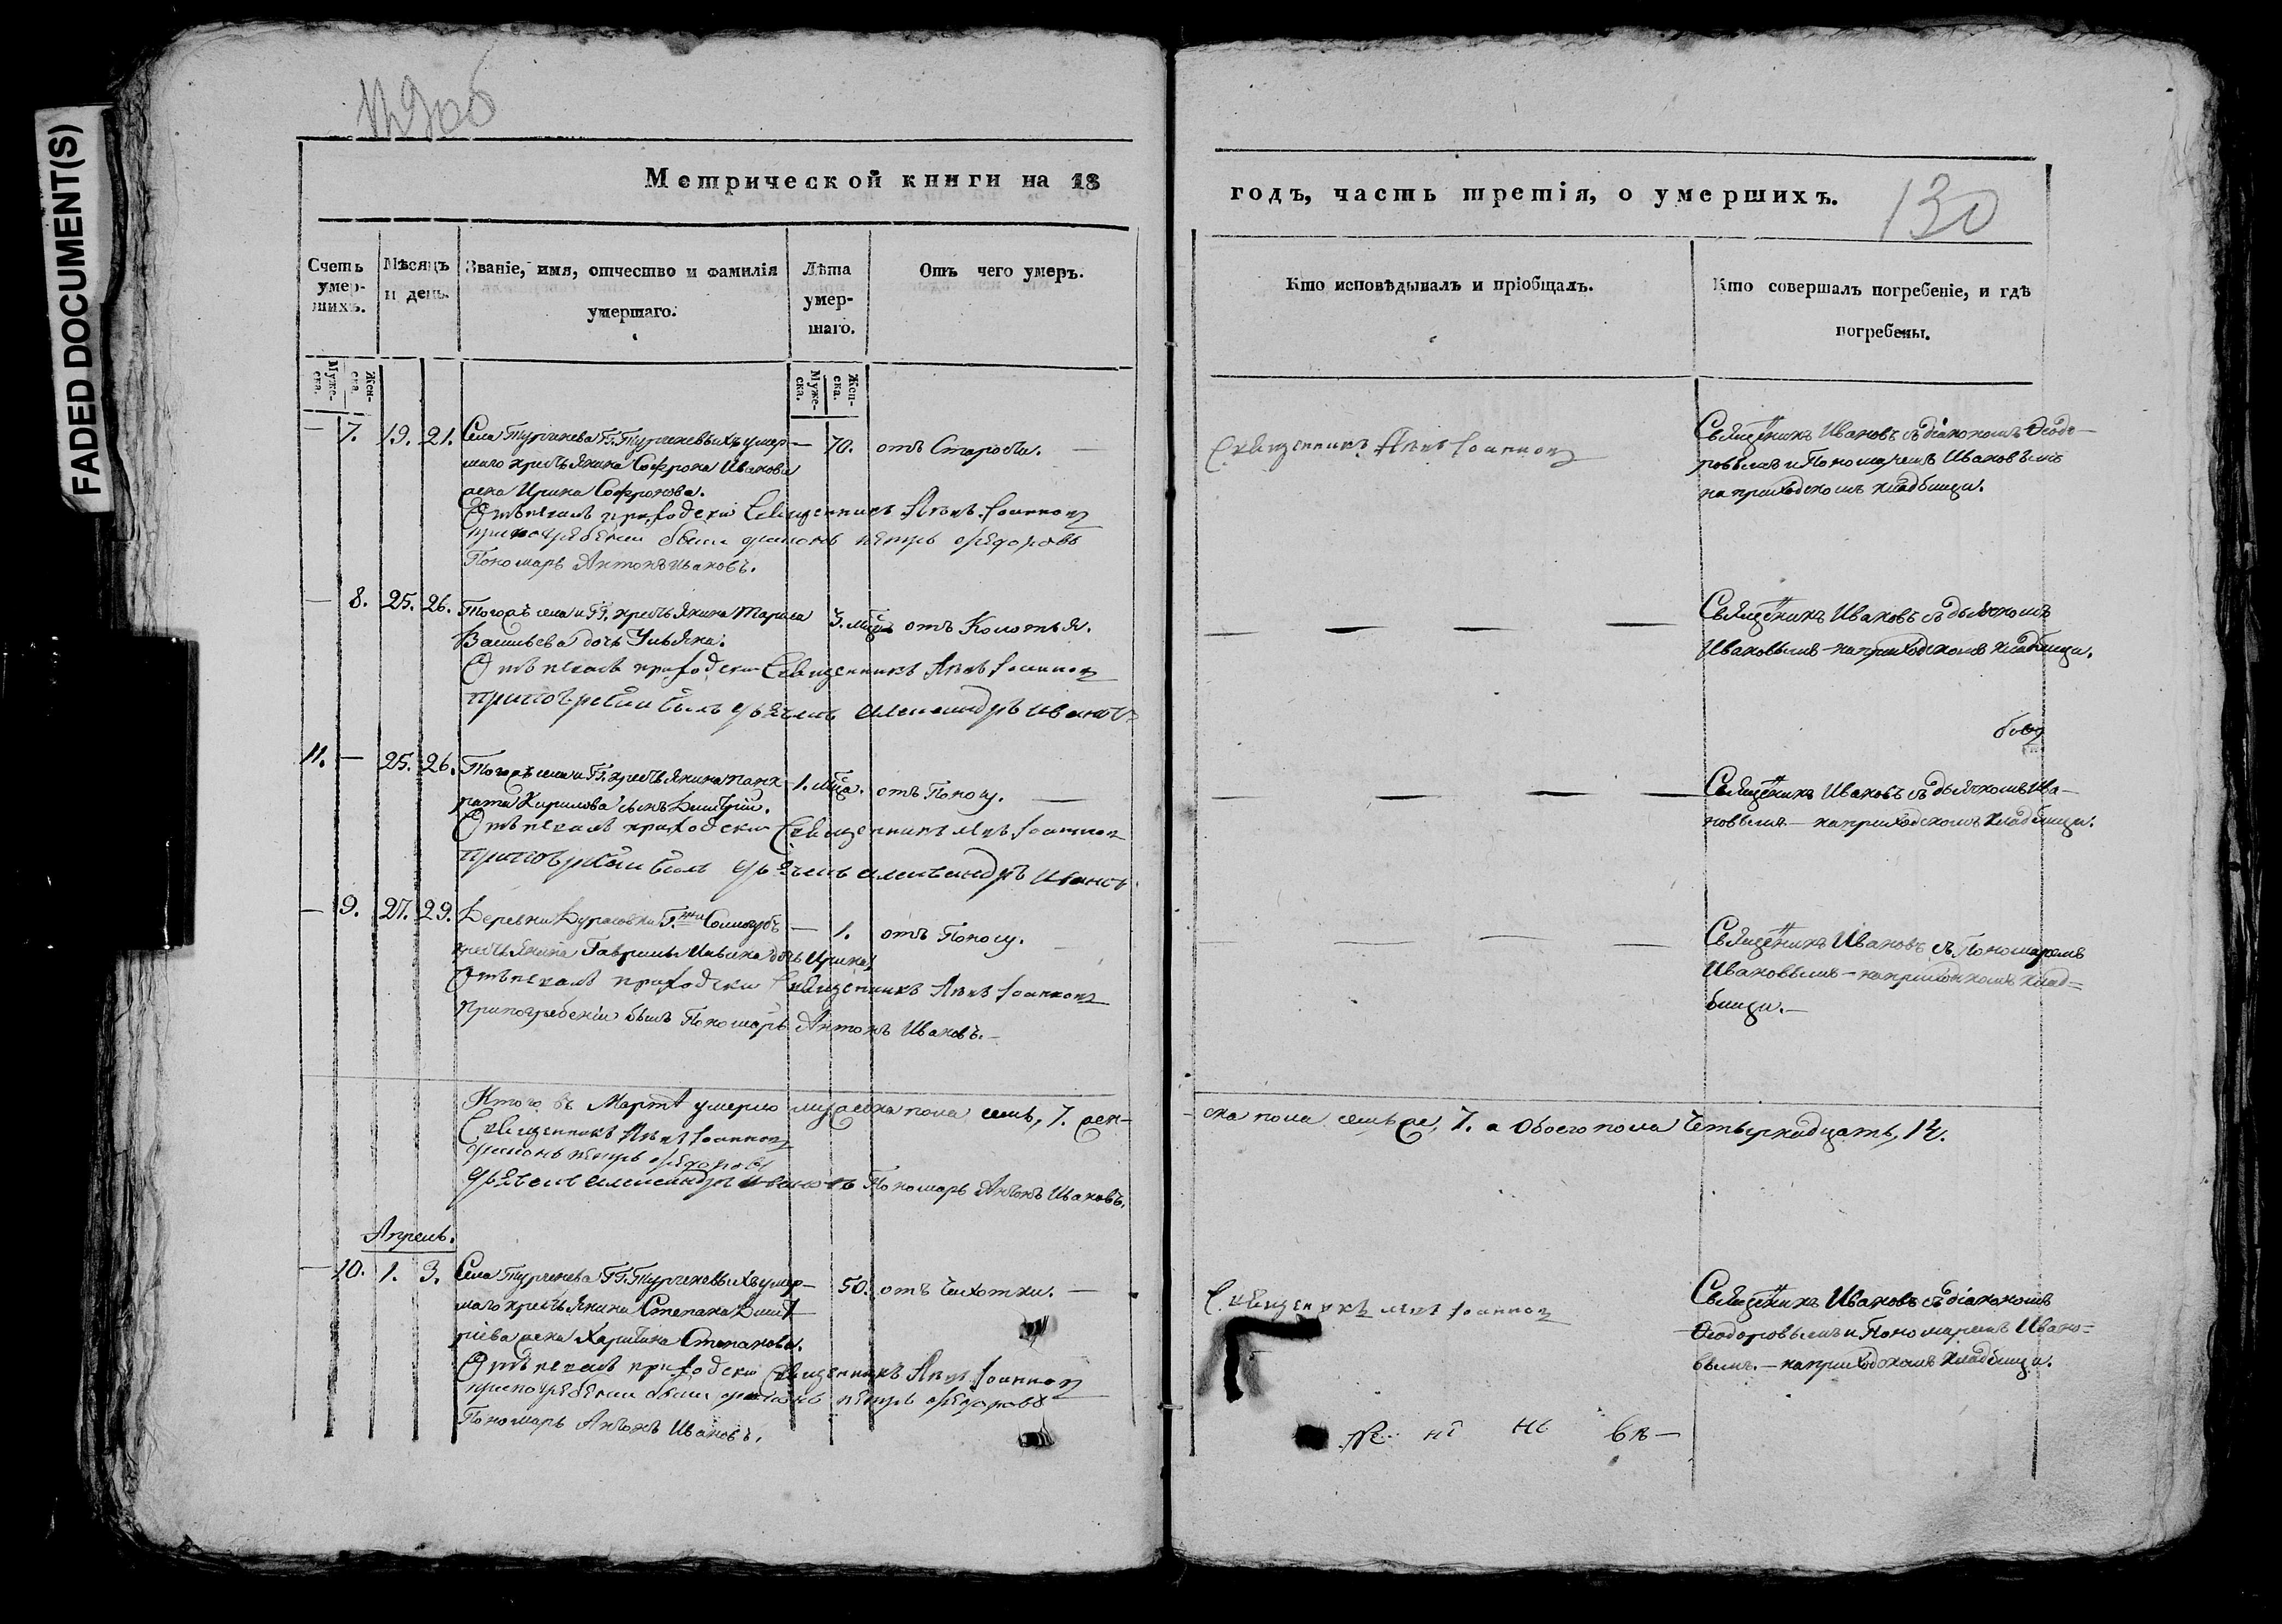 FADED DOCUMENT(S)
Метрической книги на 18
годъ, часть третія, о умершихъ.
130
Счетъ умер-шихъ.
Мѣсяцъ и день.
Званіе, имя, отчество и фамилія умершаго.
Лѣта умер-шаго.
Отъ чего умеръ.
Кто исповѣдывалъ и пріобщалъ.
Кто совершалъ погребеніе, и гдѣ погребены.
Муже-ска.
Жен-ска.
Муже-ска.
Жен-ска.
— 7. 19. 21. Села Тургенева Гг. Тургеневыхъ умер— 70. отъ Старости. —
шаго крестьянина Софрона Иванова
жена Ирина Софронова.
Отпевалъ приходски Священникъ Іоаннов
при погребении были диаконъ петръ федоровъ
Пономарь Антонъ Ивановъ.
Священникъ Іоаннов
Священникъ Ивановъ съ діакономъ Ѳеодо—
ровымъ и Пономаремъ Ивановымъ
на приходскомъ кладбищи.
— 8. 25. 26. Тогожъ села и Гг. крестьянина 3. мца отъ Колотья.
Васильева дочь Ульяна.
Отпевалъ приходски Священникъ Іоаннов
при погребении былъ дьячекъ александръ иванов
Священникъ Ивановъ съ дьячкомъ
Ивановымъ — на приходскомъ кладбищи.
11. — 25. 26. Тогожъ села и Гг. крестьянина панк 1. мца. отъ Поносу. —
рата Кирилова сынъ Димитрій.
Отпевалъ приходски Священникъ Іоаннов
при погребении былъ дьячекъ александръ иванов
Священникъ Ивановъ съ дьячкомъ Ива—
новымъ — на приходскомъ кладбищи.
— 9. 27. 29. Деревни Гжи Сологубъ — 1. отъ Поносу.
крестьянина Гаврилы дочь Ирина
Отпевалъ приходски Священникъ Іоаннов
При погребеніи былъ Пономарь Антонъ Ивановъ.—
Священникъ Ивановъ съ Пономаремъ
Ивановымъ — на приходскомъ клад=
бищи.—
Итого въ Мартѣ умерло мужеска пола семь, 7. жен—
ска пола семь же, 7. а Обоего пола Четырнадцать, 14.
Священникъ Іоаннов
диаконъ петръ федоровъ
дьячекъ александръ ивановъ Пономарь Антонъ Ивановъ.
Апрель.
— 10. 1. 3. Села Тургенева Гг. Тургеневыхъ умер— 50. отъ Чихотки. —
шаго крестьянина Степана Димит
ріева жена Харитина Степанова.
Отпевалъ приходски Священникъ Іоаннов
при погребении были диаконъ петръ федоровъ
Пономарь Антонъ Ивановъ.
Священникъ Іоаннов
Священникъ Ивановъ съ діакономъ
Ѳеодоровымъ и Пономаремъ Ивано=
вымъ. — на приходскомъ кладбищи.